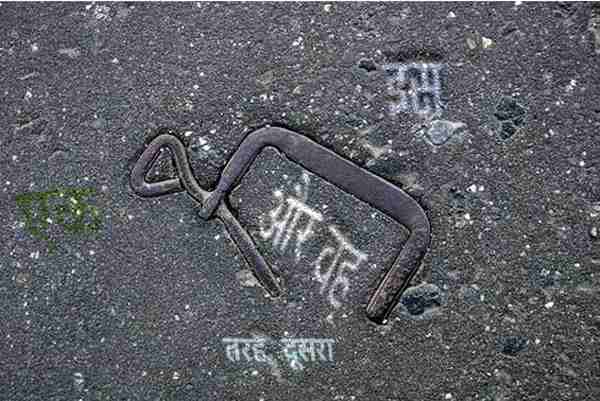 एक
और वह
तरह, दूसरा